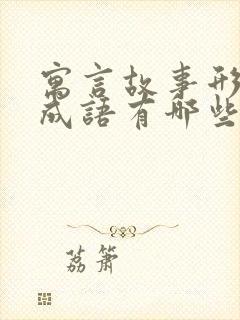 寓言故事形
成語有哪些
荔箫